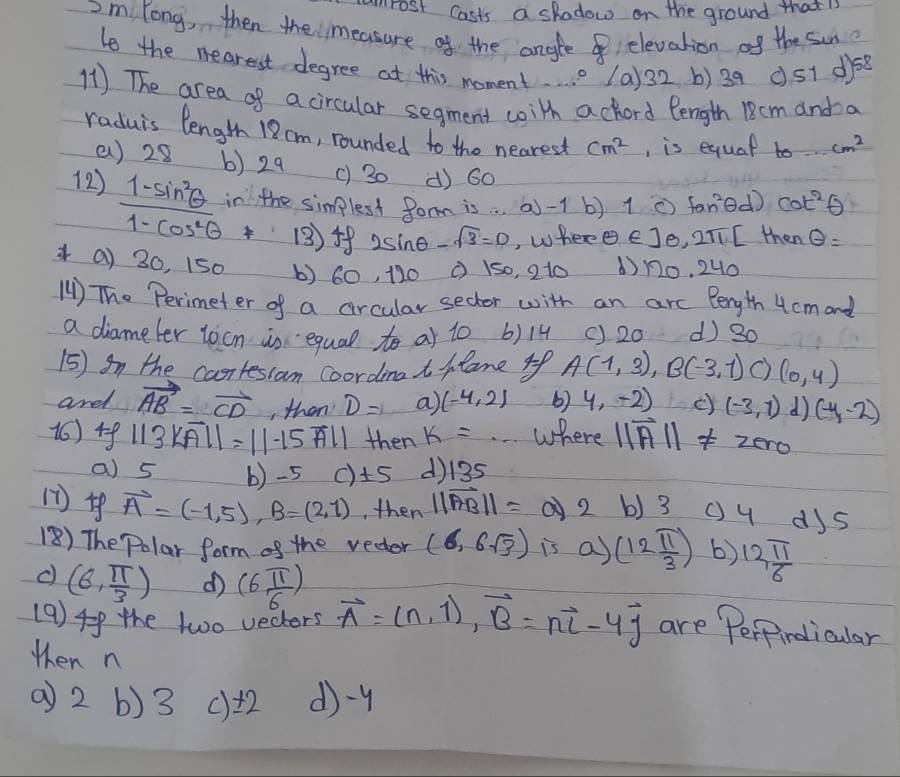 casts a shadow on the ground that is
2m long, then the measure of the angle of elevation of the sun
to the nearest degree at this moment ...° (a) 32 b) 39 c) 51 d) 58
11) The area of a circular segment with a chord length 18cm and a
raduis length 18cm, rounded to the nearest cm², is equal to ... cm²
a) 28 b) 29 c) 30 d) 60
12) 1-sin²θ / 1-cos²θ in the simplest form is ... a) -1 b) 1 c) tan²θ d) cot²θ
13) If 2sinθ - √3 = 0, where θ ∈ ]0, 2π[ then θ =
a) 30, 150 b) 60, 120 c) 150, 210 d) 120, 240
14) The Perimeter of a circular sector with an arc length 4cm and
a diameter 10cm is equal to a) 10 b) 14 c) 20 d) 30
15) In the cartesian coordinat plane If A(1, 3), B(-3, 1) C) (0, 4)
and AB = CD, then D = a) (-4, 2) b) 4, -2) c) (-3, 1) d) (-4, -2)
16) If ||3KA|| = ||-15A|| then K = ... where ||A|| ≠ zero
a) 5 b) -5 c) ±5 d) 135
17) If A = (-1, 5), B = (2, 1), then ||AB|| = a) 2 b) 3 c) 4 d) 5
18) The Polar form of the vector (6, 6√3) is a) (12 π/3) b) 12, π/6
c) (6, π/3) d) (6 π/6)
19) If the two vectors A = (n, 1), B = ni - 4j are Perpindicular
then n
a) 2 b) 3 c) ±2 d) -4